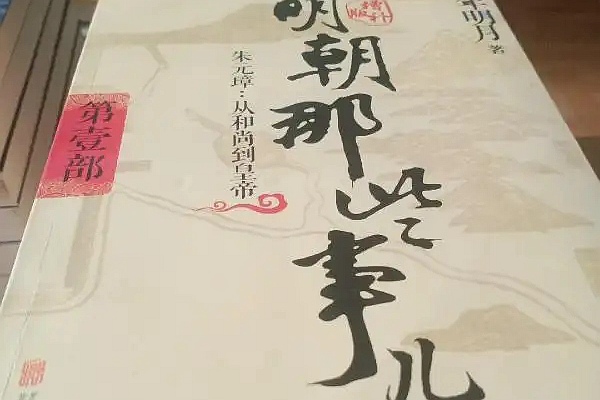 明朝那些事儿
增补版
年明月 著
朱元璋：从和尚到皇帝
第壹部